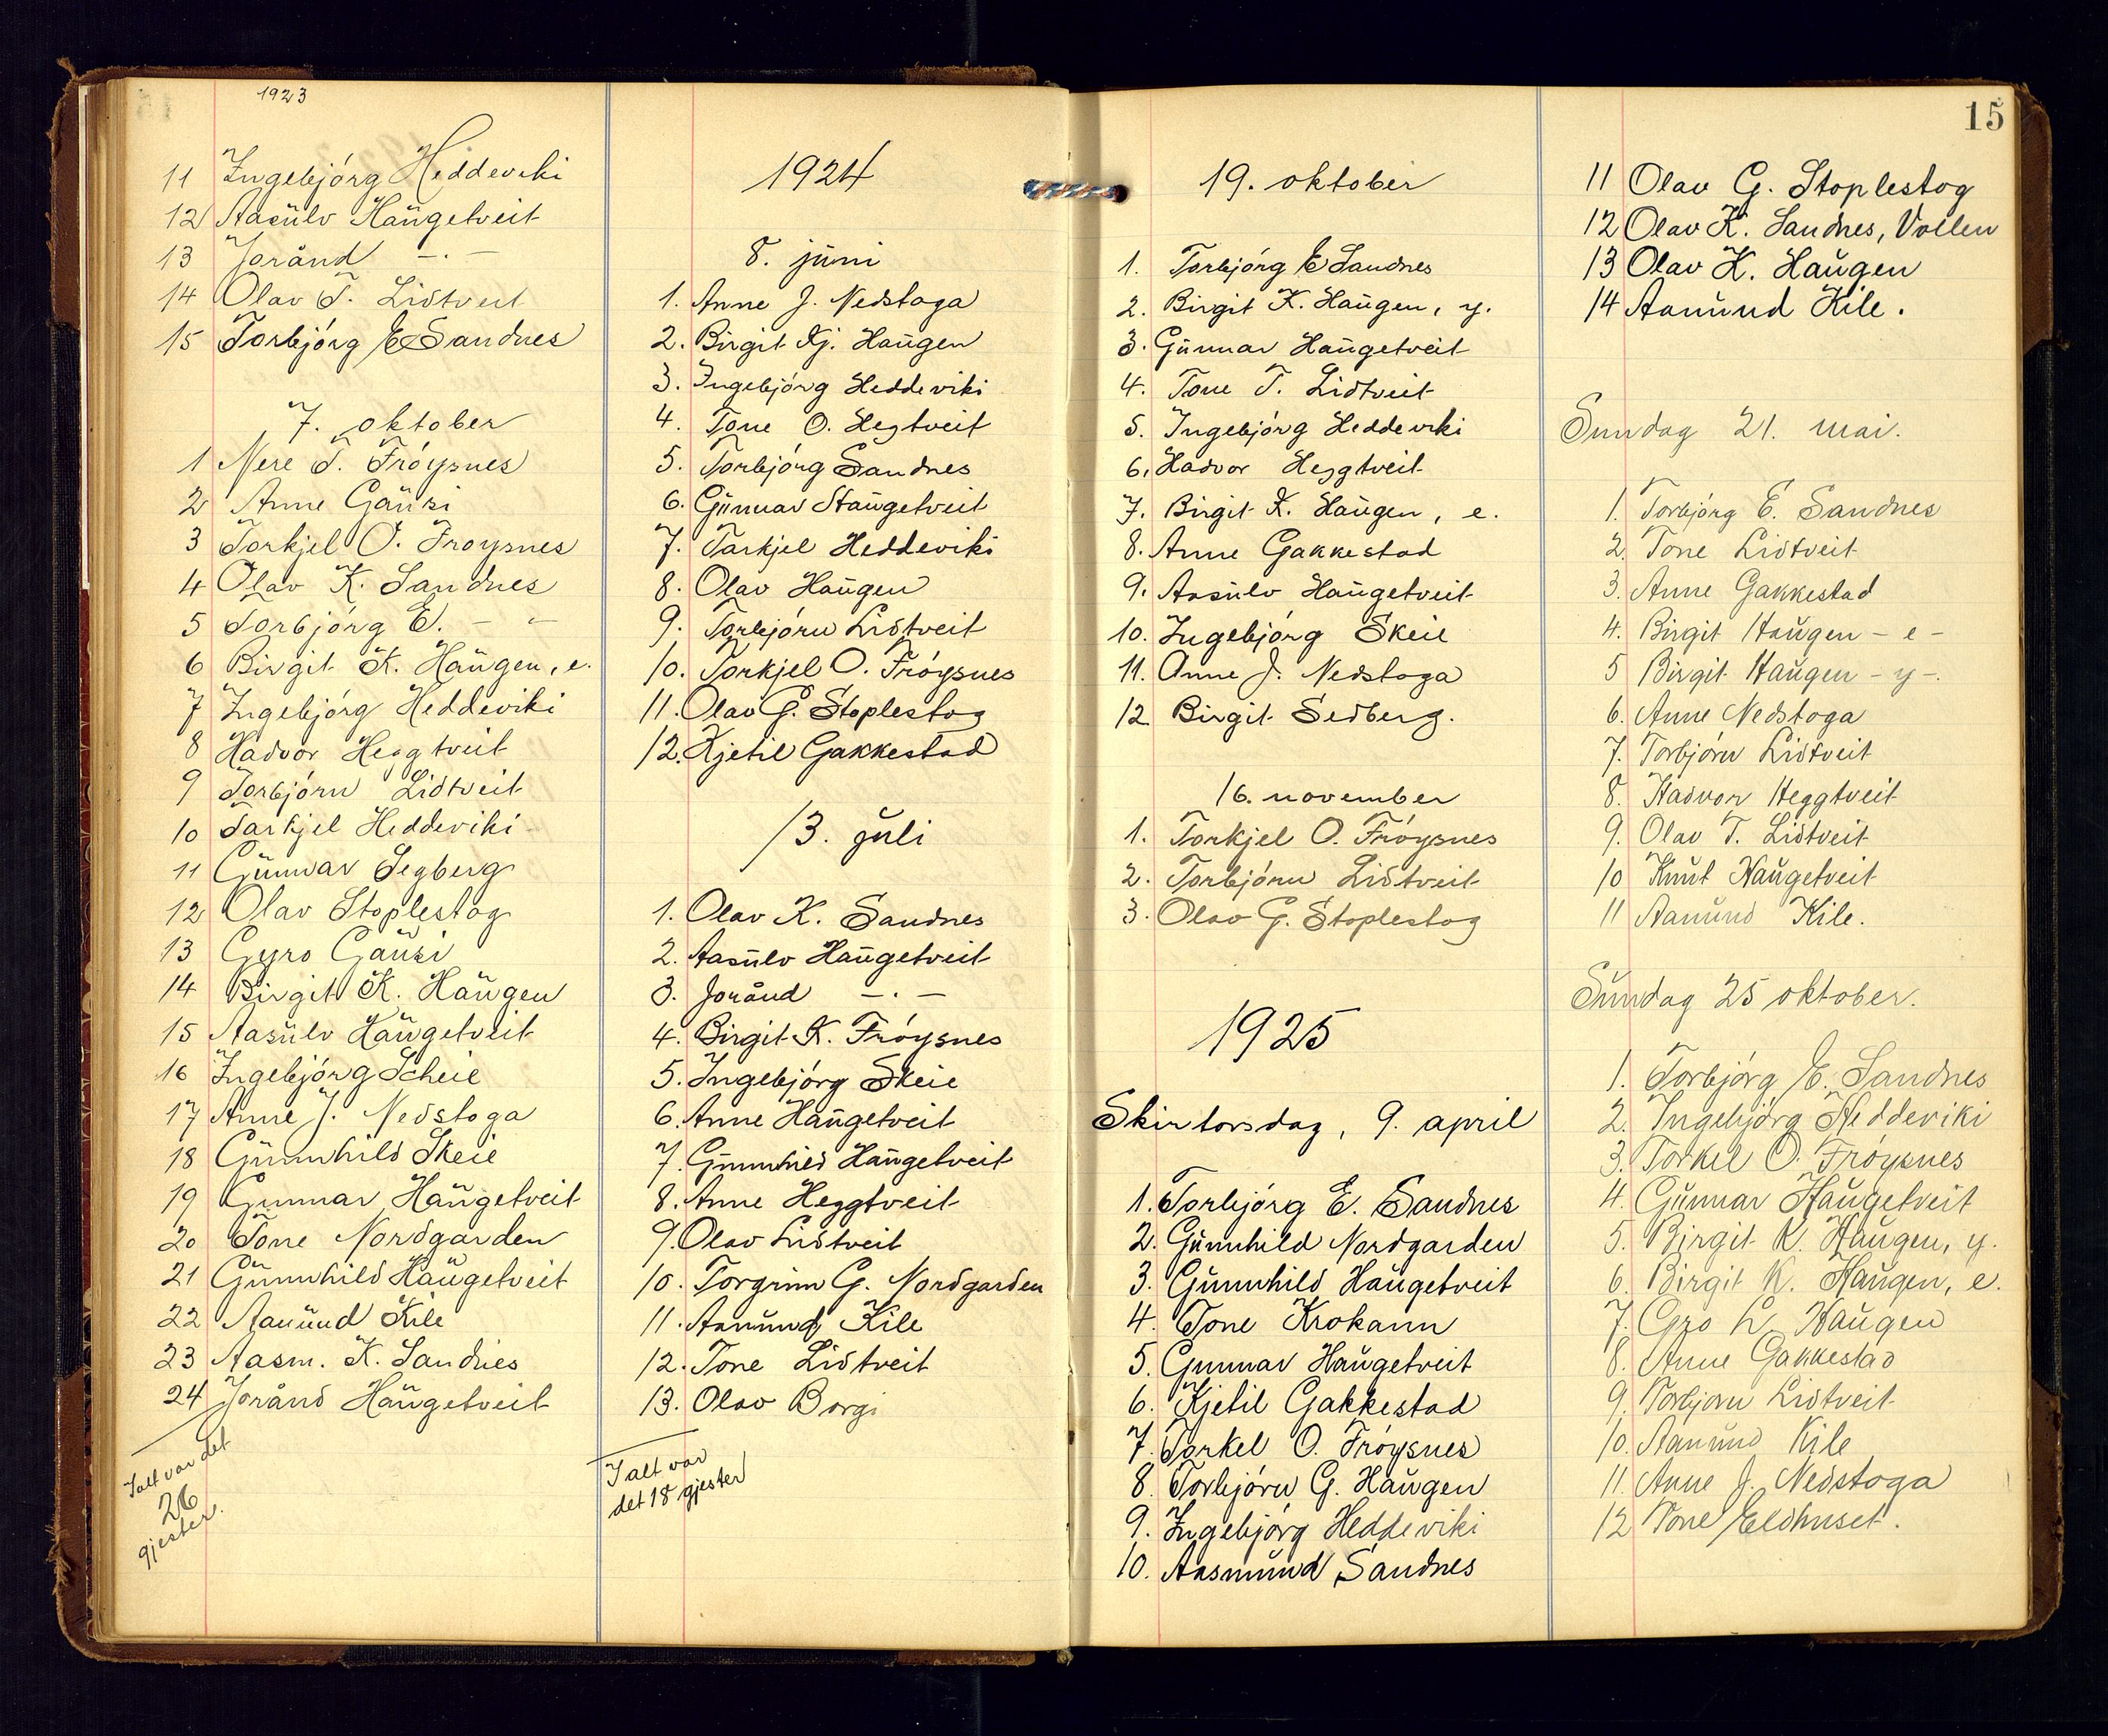 1923
11 Ingebjórg Heddeviki
12 Aasŭlv Haŭgetveit
13 Joränd - . -
14 Olav T. Lidtveit
15 Torbjórg E Sandnes
7. oktober
1 Nere T. Fróysnes
2 Anne Gaŭsi
3 Torkjel O. Froysnes
4 Olav K. Sandnes
5 Torbjórg E. - " -
6 Birgit K. Haŭgen, e.
7 Ingebjórg Heddeviki
8 Hadvor Heggtveit
9 Torbjórn Lidtveit
10 Tarkjel Heddeviki
11 Gŭnnar Segberg
12 Olav Stoplestog
13 Gyro Gaŭsi
14 Birgit K. Haŭgen
15 Aasŭlv Haŭgetveit
16 Ingebjórg Scheie
17 Anne J. Nedstoga
18 Gŭnnhild Skeie
19 Gunnar Haŭgetveit
20 Tone Nordgarden
21 Gŭnnhild Haŭgetveit
22 Aanŭnd Kile
23 Aasm. K. Sandnes
24 Joränd Haŭgetveit
Ialt var det
26
gjester.
1924
8. jŭni
1. Anne J. Nedstoga
2. Birgit Kj. Haŭgen
3. Ingebjórg Heddeviki
4. Tone O. Hegtveit
5. Torbjórg Sandnes
6. Gŭnnar Haŭgetveit
7. Tarkjel Heddeviki
8. Olav Haŭgen
9. Torbjórn Lidtveit
10. Torkjel O. Fróysnes
11. Olav G. Stoplestog
12. Kjetil Gakkestad
13. jŭli
1. Olav K. Sandnes
2. Aasŭlv Haŭgetveit
3. Joränd - . -
4. Birgit K. Fróysnes
5. Ingebjórg Skeie
6. Anne Haŭgetveit
7. Gŭnnhild Haŭgetveit
8. Anne Heggtveit
9. Olav Lidtveit
10. Torgrim G. Nordgarden
11. Aanŭnd Kile
12. Tone Lidtveit
13. Olav Borgi
I alt var
det 18 gjester
19. oktober
1. Torbjórg E Sandnes
2. Birgit K. Haŭgen, y.
3. Gŭnnar Haŭgetveit
4. Tone T. Lidtveit
5. Ingebjórg Heddeviki
6. Hadvor Heggtveit
7. Birgit K. Haŭgen, e.
8. Anne Gakkestad
9. Aasŭlv Haŭgetveit
10. Ingebjórg Skeie
11. Anne J. Nedstoga
12 Birgit Sedberg.
16. november
1. Torkjel O. Fróysnes
2. Torbjórn Lidtveit
3. Olav G. Stoplestog
1925
Skirtorsdag, 9. april
1. Torbjórg E. Sandnes
2. Gŭnnhild Nordgarden
3. Gŭnnhild Haŭgetveit
4. Tone Krokann
5. Gunnar Haŭgetveit
6. Kjetil Gakkestad
7. Torkel O. Fróysnes
8. Torbjórn G. Haŭgen
9. Ingebjórg Heddeviki
10. Aasmŭnd Sandnes
15
11 Olav G. Stoplestog
12 Olav K. Sandnes, Vollen
13 Olav K. Haŭgen
14 Aanŭnd Kile.
Sundag 21. mai.
1. Torbjórg E. Sandnes
2. Tone Lidtveit
3. Anne Gakkestad
4. Birgit Haŭgen - e -
5 Birgit Haŭgen - y -.
6. Anne Nedstoga
7. Torbjórn Lidtveit
8. Hadvor Heggtveit
9. Olav T. Lidtveit
10 Knŭt Haŭgetveit
11 Aanŭnd Kile.
Sŭndag 25 oktober.
1. Torbjórg E. Sandnes
2. Ingebjórg Heddeviki
3. Torkel O. Fróysnes
4. Gŭnnar Haŭgetveit
5. Birgit K. Haŭgen, y.
6. Birgit K. Haŭgen, e.
7. Gro L Haŭgen
8. Anne Gakkestad
9. Torbjorn Lidtveit
10. Aanŭnd Kile
11. Anne J. Nedstoga
12 Tone Eldhuset.